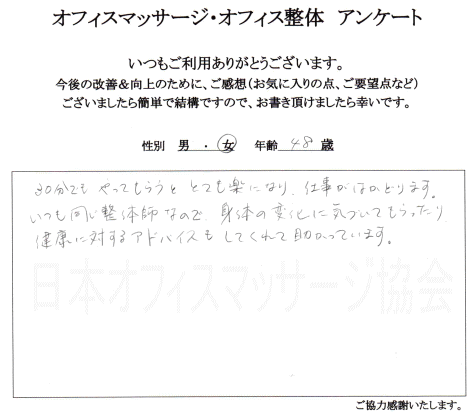 オフィスマッサージ・オフィス整体 アンケート
いつもご利用ありがとうございます。
今後の改善&向上のために、ご感想(お気に入りの点、ご要望点など)
ございましたら簡単で結構ですので、お書き頂けましたら幸いです。
性別 男 ・ 女 年齢 48 歳
30分でも やってもらうと とても楽になり、仕事がはかどります。
いつも同じ整体師なので、身体の変化に気づいてもらったり、
健康に対するアドバイスも してくれて助かっています。
日本オフィスマッサージ協会
ご協力感謝いたします。